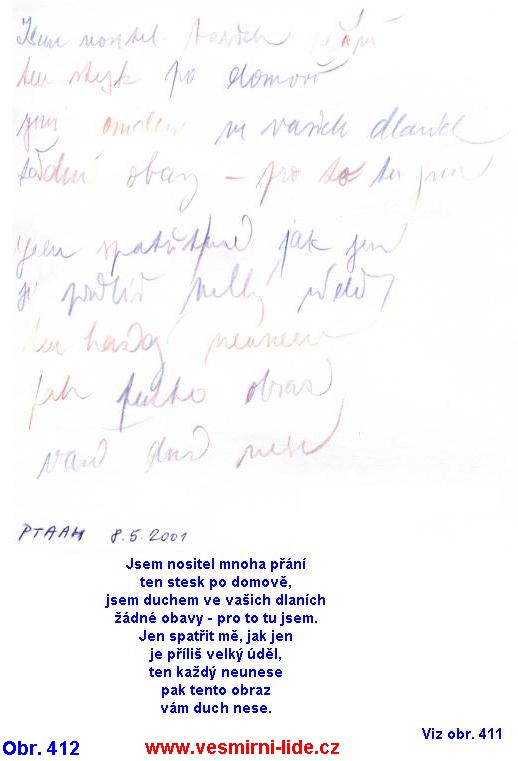 Jsem nositel
ten stesk po domově
jsmi ve vašich dlaních
žádné obavy – pro to tu jsem
Jen spatřit mě jak jen
je příliš velký úděl
ten každý neunese
pak obraz
vám duch nese
PTAAH 8.5.2001
Jsem nositel mnoha přání
ten stesk po domově,
jsem duchem ve vašich dlaních
žádné obavy - pro to tu jsem.
Jen spatřit mě, jak jen
je příliš velký úděl,
ten každý neunese
pak tento obraz
vám duch nese.
Viz obr. 411
Obr. 412
www.vesmirni-lide.cz